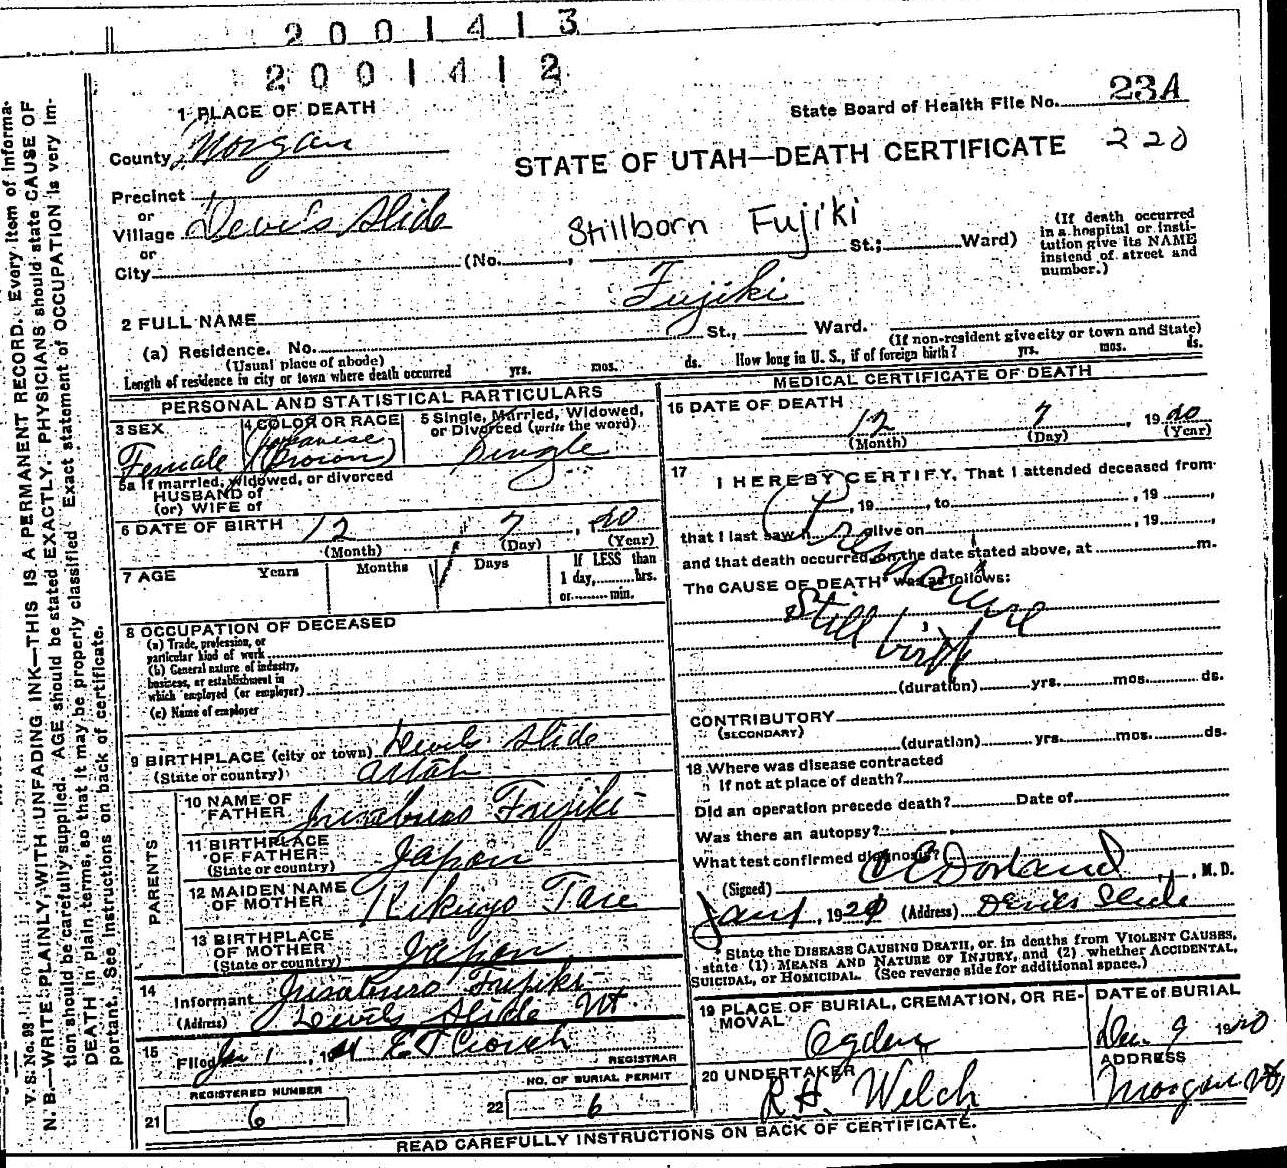 2001413
2001412
1 PLACE OF DEATH
State Board of Health File No. 23A
County Morgan
STATE OF UTAH—DEATH CERTIFICATE 220
Precinct
or
Village Devil's Slide
or
City
(No. , Stillborn Fujiki St.; Ward)
(If death occurred in a hospital or institution give its NAME instead of street and number.)
2 FULL NAME Fujiki
(a) Residence. No. St., Ward.
(Usual place of abode)
(If non-resident give city or town and State)
Length of residence in city or town where death occurred yrs. mos. ds. How long in U. S., if of foreign birth? yrs. mos. ds.
PERSONAL AND STATISTICAL PARTICULARS
3 SEX
Female
4 COLOR OR RACE
Japanese
(Brown)
5 Single, Married, Widowed, or Divorced (write the word)
Single
5a If married, widowed, or divorced
HUSBAND of
(or) WIFE of
6 DATE OF BIRTH 12 7, 20
(Month) (Day) (Year)
7 AGE Years Months Days If LESS than
1 day, hrs.
or min.
8 OCCUPATION OF DECEASED
(a) Trade, profession, or
particular kind of work
(b) General nature of industry,
business, or establishment in
which employed (or employer)
(c) Name of employer
9 BIRTHPLACE (city or town) Devils Slide
(State or country) Utah
PARENTS
10 NAME OF FATHER Jusaburo Fujiki
11 BIRTHPLACE OF FATHER Japan
(State or country)
12 MAIDEN NAME OF MOTHER Kikuyo Tare
13 BIRTHPLACE OF MOTHER Japan
(State or country)
14
Informant Jusaburo Fujiki
(Address) Devils Slide Ut
15
Filed Jan 1 19 21 E T Crouch
REGISTRAR
REGISTERED NUMBER
21 6
NO. OF BURIAL PERMIT
22 6
MEDICAL CERTIFICATE OF DEATH
16 DATE OF DEATH
12 7, 1920
(Month) (Day) (Year)
17 I HEREBY CERTIFY, That I attended deceased from
, 19 , to , 19 ,
that I last saw h alive on , 19 ,
and that death occurred, on the date stated above, at m.
The CAUSE OF DEATH* was as follows:
Premature
Still birth
(duration) yrs. mos. ds.
CONTRIBUTORY
(SECONDARY)
(duration) yrs. mos. ds.
18 Where was disease contracted
if not at place of death?
Did an operation precede death? Date of
Was there an autopsy?
What test confirmed diagnosis?
(Signed) C E Dorland, M. D.
Jan 1, 1921 (Address) Devils Slide
* State the DISEASE CAUSING DEATH, or in deaths from VIOLENT CAUSES, state (1) MEANS AND NATURE OF INJURY, and (2) whether ACCIDENTAL, SUICIDAL, or HOMICIDAL. (See reverse side for additional space.)
19 PLACE OF BURIAL, CREMATION, OR REMOVAL
Ogden
DATE of BURIAL
Dec 9 1920
20 UNDERTAKER
R. H. Welch
ADDRESS
Morgan Ut
READ CAREFULLY INSTRUCTIONS ON BACK OF CERTIFICATE.
V. S. No. 98
N. B.—WRITE PLAINLY, WITH UNFADING INK—THIS IS A PERMANENT RECORD. Every item of information should be carefully supplied. AGE should be stated EXACTLY. PHYSICIANS should state CAUSE OF DEATH in plain terms, so that it may be properly classified. Exact statement of OCCUPATION is very important. See instructions on back of certificate.